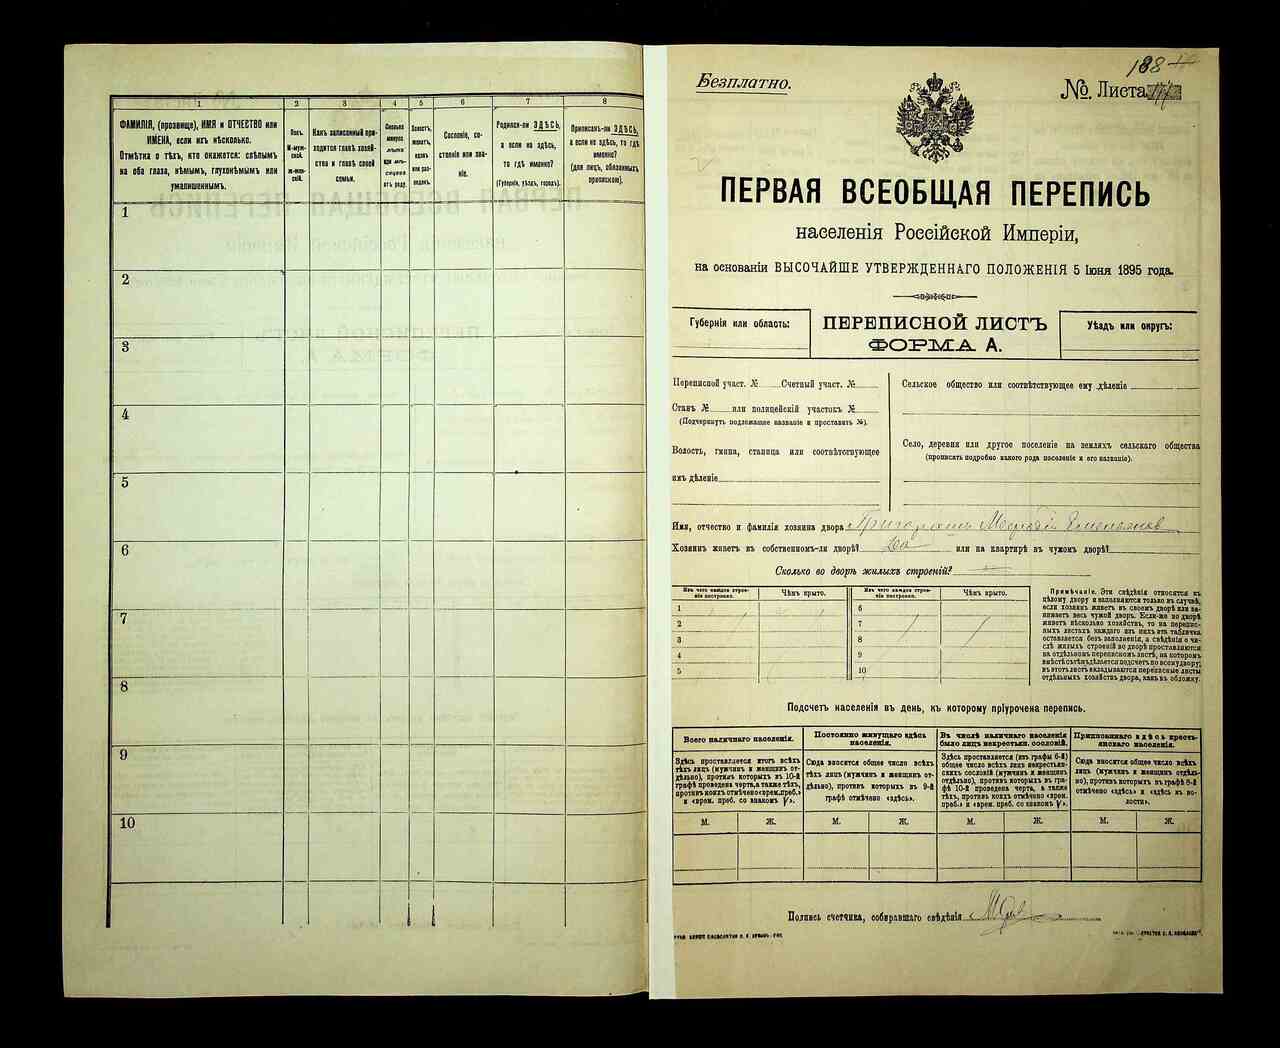 1
2
3
4
5
6
7
8
ФАМИЛІЯ, (прозвище), ИМЯ и ОТЧЕСТВО или
ИМЕНА, если ихъ нѣсколько.
Отмѣтка о тѣхъ, кто окажется: слѣпымъ
на оба глаза, нѣмымъ, глухонѣмымъ или
умалишеннымъ.
Полъ.
М-муж-
ской.
Ж-жен-
скій.
Какъ записанный при-
ходится главѣ хозяй-
ства и главѣ своей
семьи.
Сколько
минуло
лѣтъ
или мѣ-
сяцевъ
отъ роду.
Холостъ,
женатъ,
вдовъ
или раз-
веденъ.
Сословіе, со-
стояніе или зва-
ніе.
Родился-ли ЗДѢСЬ,
а если не здѣсь,
то гдѣ именно?
(Губернія, уѣздъ, городъ).
Приписанъ-ли ЗДѢСЬ,
а если не здѣсь, то гдѣ
именно?
(для лицъ, обязанныхъ
припискою).
1
2
3
4
5
6
7
8
9
10
188
Безплатно.
№ Листа
ПЕРВАЯ ВСЕОБЩАЯ ПЕРЕПИСЬ
населенія Россійской Имперіи,
на основаніи ВЫСОЧАЙШЕ УТВЕРЖДЕННАГО ПОЛОЖЕНІЯ 5 Іюня 1895 года.
Губернія или область:
ПЕРЕПИСНОЙ ЛИСТЪ
ФОРМА А.
Уѣздъ или округъ:
Переписной участ. № Счетный участ. №
Станъ № или полицейскій участокъ №
(Подчеркнуть подлежащее названіе и проставить №).
Волость, гмина, станица или соотвѣтствующее
имъ дѣленіе
Сельское общество или соотвѣтствующее ему дѣленіе
Село, деревня или другое поселеніе на земляхъ сельскаго общества
(прописать подробно какого рода поселеніе и его названіе).
Имя, отчество и фамилія хозяина двора
Хозяинъ живетъ въ собственномъ-ли дворѣ? Да или на квартирѣ въ чужомъ дворѣ?
Сколько во дворѣ жилыхъ строеній?
Изъ чего каждое строе-
ніе построено.
Чѣмъ крыто.
Изъ чего каждое строе-
ніе построено.
Чѣмъ крыто.
1
2
3
4
5
6
7
8
9
10
Примѣчаніе. Эти свѣдѣнія относятся къ
цѣлому двору и заполняются только въ случаѣ,
если хозяинъ живетъ въ своемъ дворѣ или за-
нимаетъ весь чужой дворъ. Если-же во дворѣ
живетъ нѣсколько хозяйствъ, то на перепис-
ныхъ листахъ каждаго изъ нихъ эта табличка
оставляется безъ заполненія, а свѣдѣнія о чи-
слѣ жилыхъ строеній во дворѣ проставляются
на отдѣльномъ переписномъ листѣ, на которомъ
вмѣстѣ съ тѣмъ дѣлается подсчетъ по всему двору;
въ этотъ листъ вкладываются переписные листы
отдѣльныхъ хозяйствъ двора, какъ въ обложку.
Подсчетъ населенія въ день, къ которому пріурочена перепись.
Всего наличнаго населенія.
Здѣсь проставляется итогъ всѣхъ
тѣхъ лицъ (мужчинъ и женщинъ от-
дѣльно), противъ которыхъ въ 10-й
графѣ проведена черта, а также тѣхъ,
противъ коихъ отмѣчено «врем. преб.»
и «врем. преб. со знакомъ V».
Постоянно живущаго здѣсь
населенія.
Сюда вносится общее число всѣхъ
тѣхъ лицъ (мужчинъ и женщинъ от-
дѣльно), противъ которыхъ въ 9-й
графѣ отмѣчено «здѣсь».
Въ числѣ наличнаго населенія
было лицъ некрестьян. сословій.
Здѣсь проставляется (изъ графы 6-й)
общее число всѣхъ лицъ некрестьян-
скихъ сословій (мужчинъ и женщинъ
отдѣльно), противъ которыхъ въ гра-
фѣ 10-й проведена черта, а также
тѣхъ, противъ коихъ отмѣчено «врем.
преб.» и «врем. преб. со знакомъ V».
Приписаннаго здѣсь кресть-
янскаго населенія.
Сюда вносится общее число всѣхъ
лицъ (мужчинъ и женщинъ отдѣль-
но), противъ которыхъ въ графѣ 8-й
отмѣчено «здѣсь» и «здѣсь въ во-
лости».
М.
Ж.
М.
Ж.
М.
Ж.
М.
Ж.
Подпись счетчика, собиравшаго свѣдѣнія